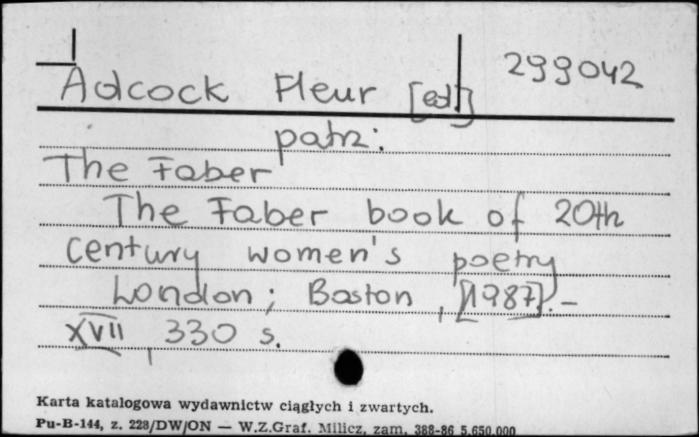 Adcock Fleur [ed] 299042
patrz:
The Faber
The Faber book of 20th
century women's poetry
London ; Boston , [1987].-
XVII , 330 s.
Karta katalogowa wydawnictw ciągłych i zwartych.
Pu-B-144, z. 228/DW/ON — W.Z.Graf. Milicz, zam. 388-86 5.650.000